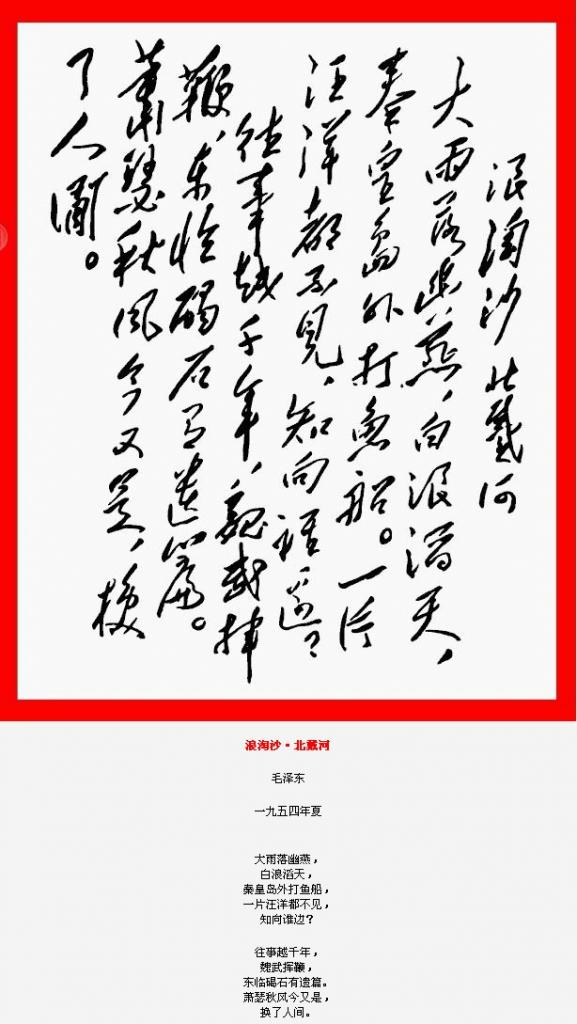 浪淘沙 北戴河
大雨落幽燕，白浪滔天，
秦皇島外打魚船。一片
汪洋都不見，知向誰邊？
往事越千年，魏武揮
鞭，東臨碣石有遺篇。
蕭瑟秋風今又是，換
了人間。
浪淘沙·北戴河
毛泽东
一九五四年夏
大雨落幽燕，
白浪滔天，
秦皇岛外打鱼船，
一片汪洋都不见，
知向谁边？
往事越千年，
魏武挥鞭，
东临碣石有遗篇。
萧瑟秋风今又是，
换了人间。